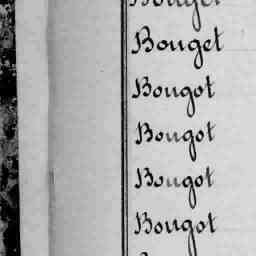 Bouget
Bouget
Bougot
Bougot
Bougot
Bougot